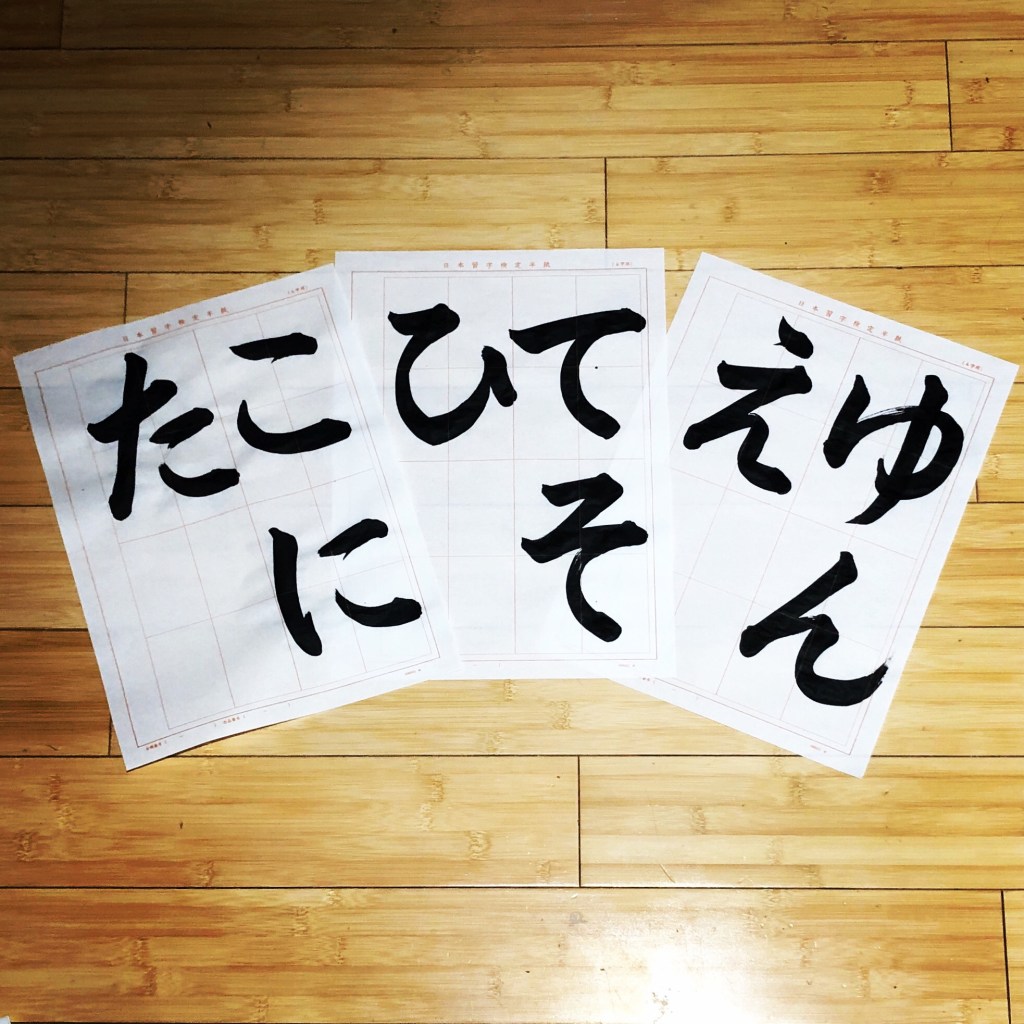 日本習字検定半紙
ゆん
え
日本習字検定半紙
てそ
ひ
日本習字検定半紙
こに
た